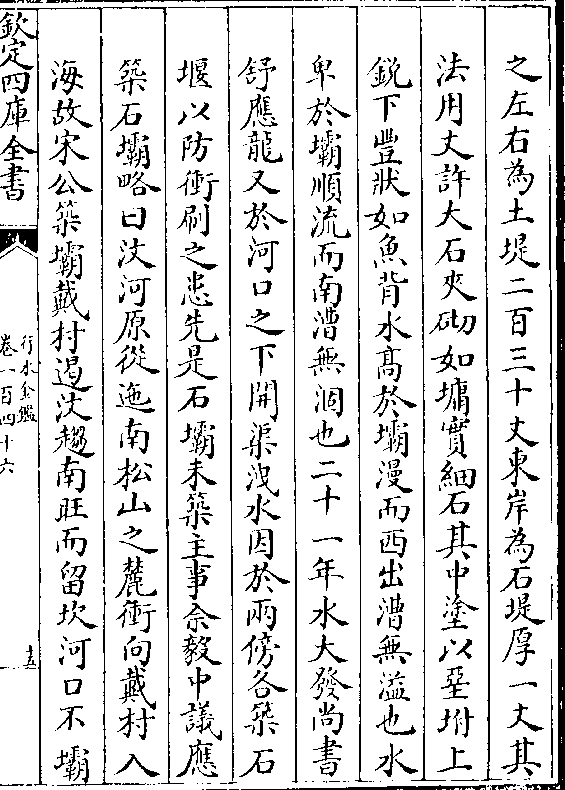 之左右為土堤二百三十丈東岸為石堤厚一丈其
法用丈許大石夾砌如墉實細石其中塗以堊坿上
銳下豐狀如魚背水高於壩漫而西出漕無溢也水
卑於壩順流而南漕無涸也二十一年水大發尚書
舒應龍又於河口之下開渠洩水因於兩傍各築石
堰以防衝刷之患先是石壩未築主事余毅中議應
築石壩略曰汶河原從迤南松山之麓衝向戴村入
海故宋公築壩戴村遏汶趨南旺而留坎河口不壩
欽定四庫全書
行水金鑑
卷一百四十六
十五